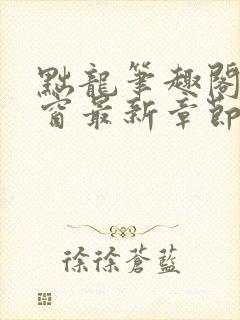 點龍筆趣閣
窗最新章節
徐徐蒼藍